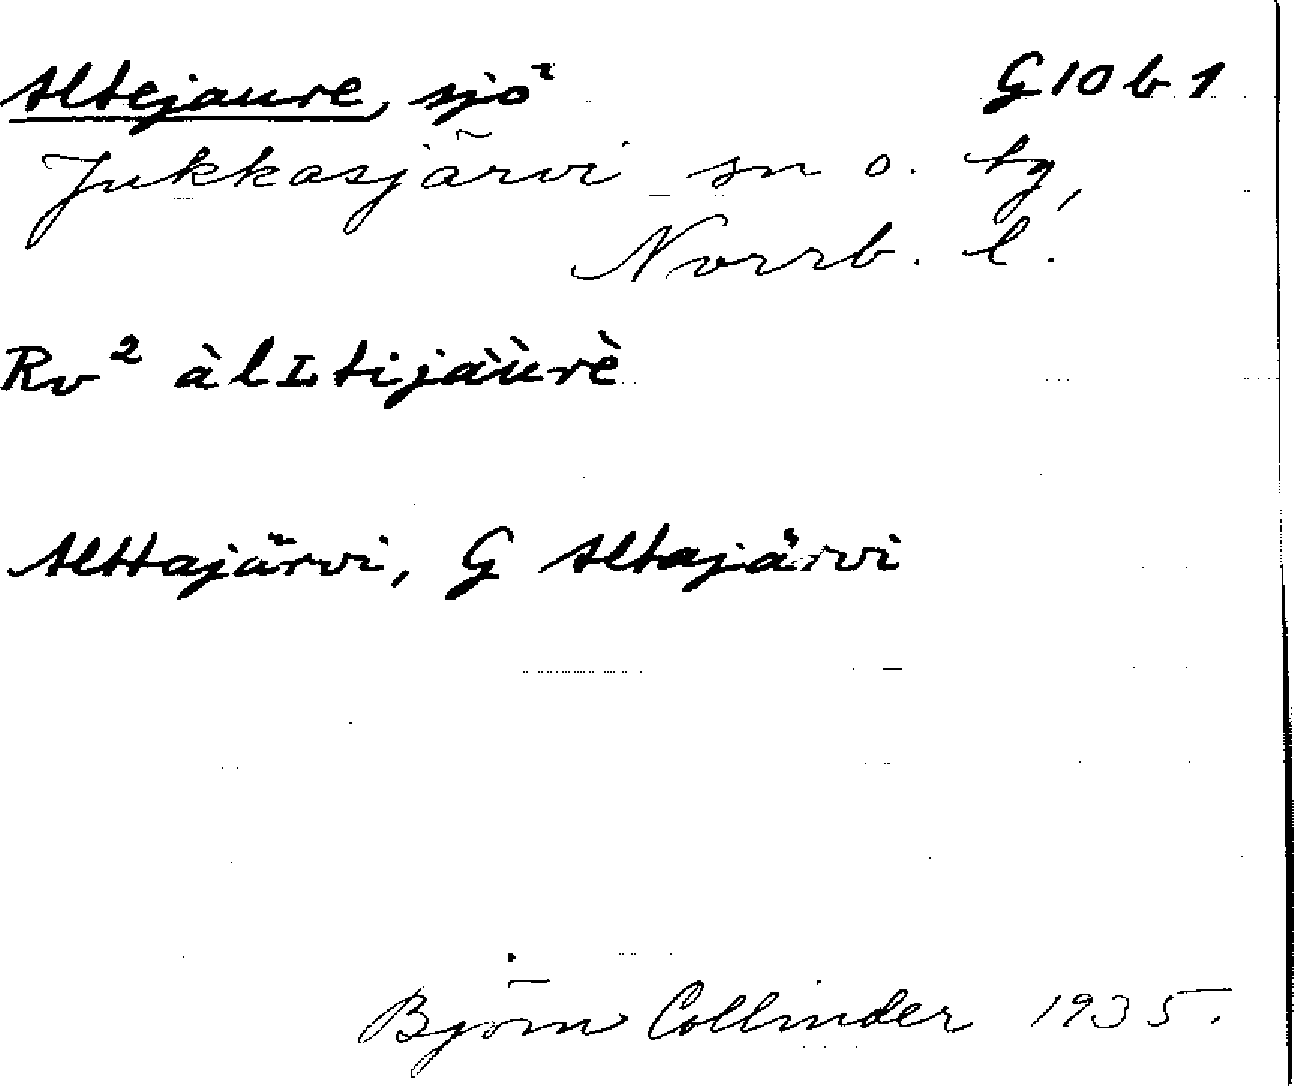 Altejaure, sjö G10b1
Jukkasjärvi sn o. tg,
Norrb. l.
Rv² àlʟtijàùrè
Alttajärvi, G Altajärvi
Björn Collinder 1935.